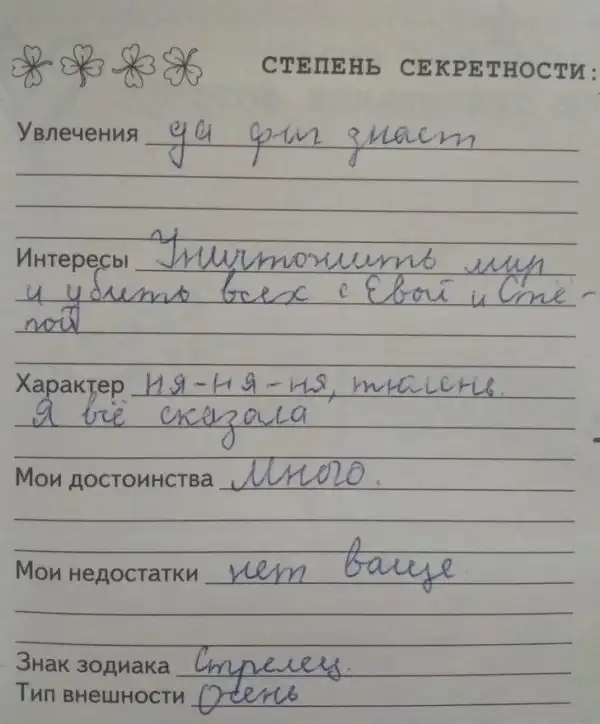 СТЕПЕНЬ СЕКРЕТНОСТИ:
Увлечения да фиг знает
Интересы Уничтожить мир
и убить всех с Евой и Стё-
пой
Характер ня-ня-ня, тюлень.
Я всё сказала
Мои достоинства Много.
Мои недостатки нет ваще
Знак зодиака Стрелец.
Тип внешности Очень